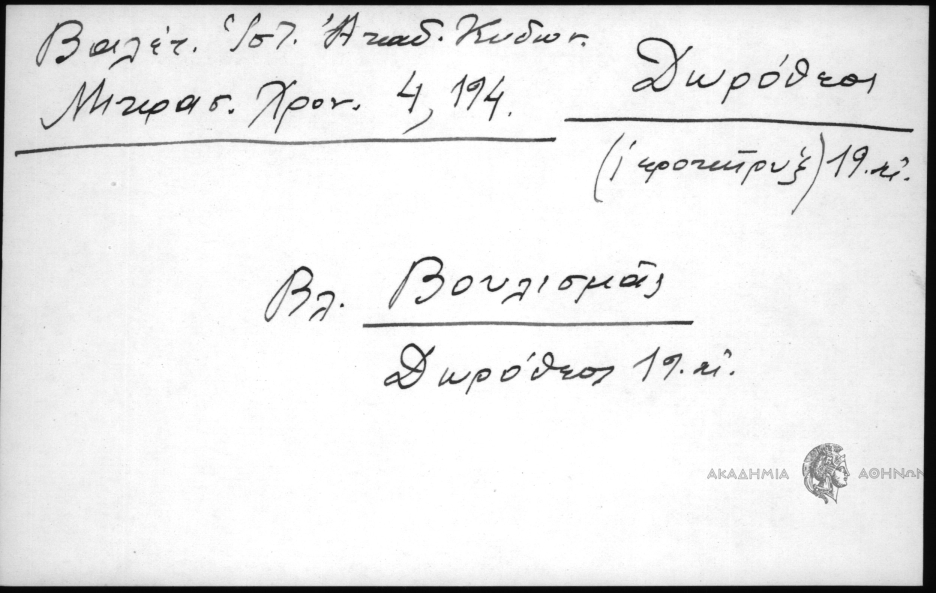 Βαλέτ. Ἱστ. Ἀκαδ. Κυδων.
Μικρασ. Χρον. 4, 194.
Δωρόθεος
(ἱεροκῆρυξ) 19. αἰ.
Βλ. Βουλισμᾶς
Δωρόθεος 19. αἰ.
ΑΚΑΔΗΜΙΑ ΑΘΗΝΩΝ